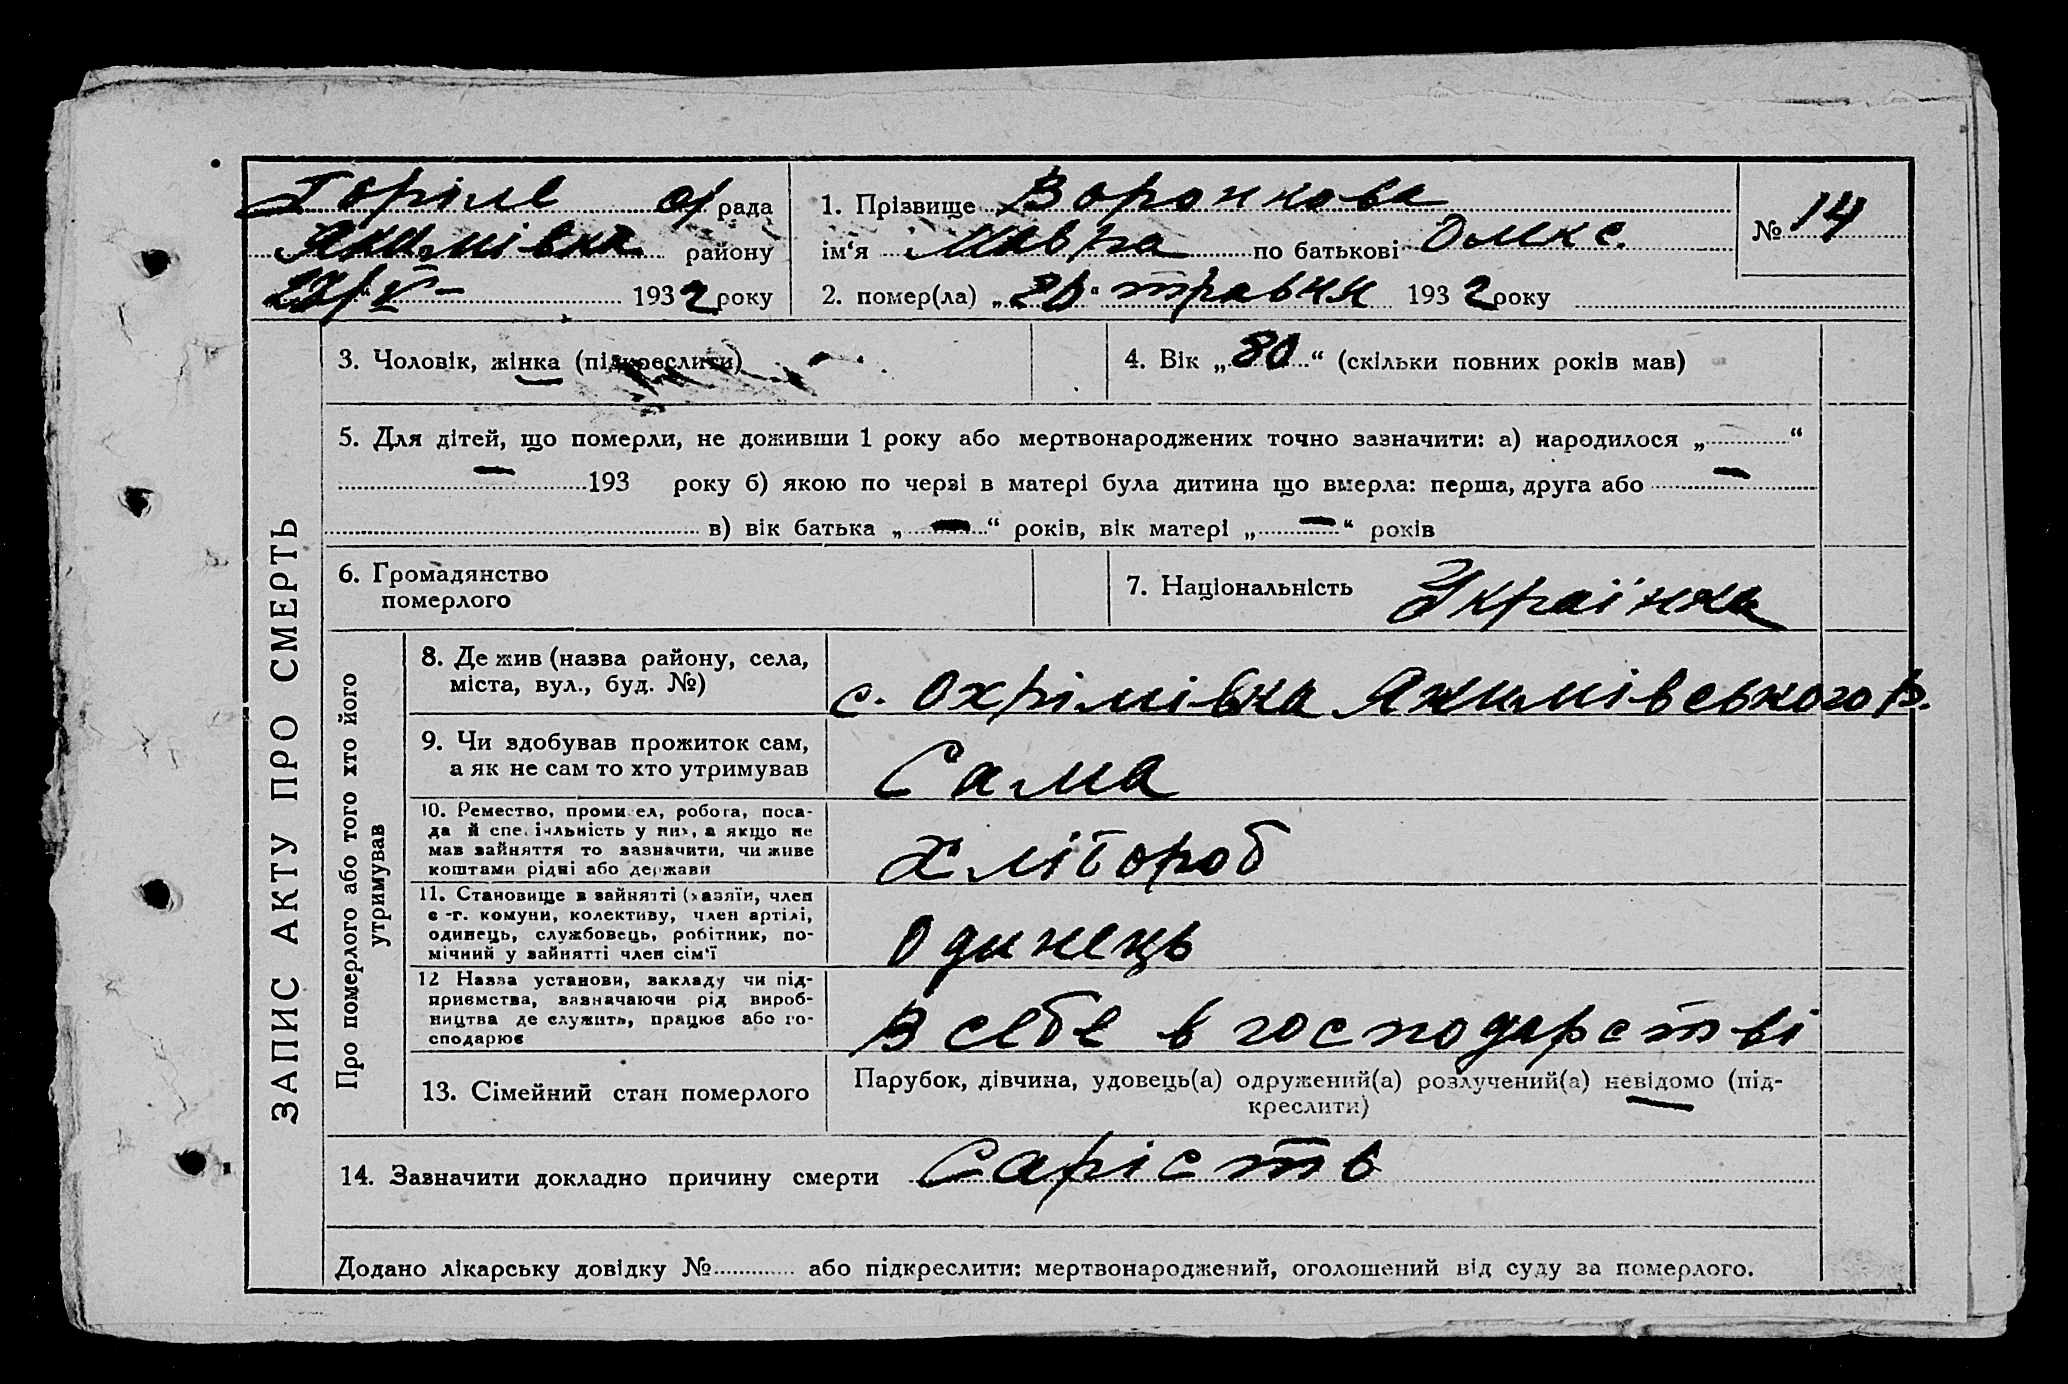 Горіле с/рада
Якимівка району
193 2 року
1. Прізвище Воронкова
ім‘я Мавра по батькові Олекс.
2. помер(ла) „20“ травня 193 2 року
№ 14
ЗАПИС АКТУ ПРО СМЕРТЬ
3. Чоловік, жінка (підкреслити)
4. Вік „80“ (скільки повних років мав)
5. Для дітей, що померли, не доживши 1 року або мертвонароджених точно зазначити: а) народилося „ “
— 193 року б) якою по черзі в матері була дитина що вмерла: перша, друга або —
в) вік батька „—“ років, вік матері „—“ років
6. Громадянство
померлого
7. Національність Українка
Про померлого або того хто його
утримував
8. Де жив (назва району, села,
міста, вул., буд. №)
с. Охрімівка Якимівського р.
9. Чи здобував прожиток сам,
а як не сам то хто утримував
Сама
10. Ремество, промисел, робота, поса-
да й спеціяльність у них, а якщо не
мав зайняття то зазначити, чи живе
коштами рідні або держави
Хлібороб
11. Становище в зайнятті (хазяїн, член
с-г. комуни, колективу, член артілі,
одинець, службовець, робітник, по-
мічний у зайнятті член сім‘ї
Одинець
12 Назва установи, закладу чи під-
приємства, зазначаючи рід вироб-
ництва де служить, працює або го-
сподарює
В себе в господарстві
13. Сімейний стан померлого
Парубок, дівчина, удовець(а) одружений(а) розлучений(а) невідомо (під-
креслити)
14. Зазначити докладно причину смерти Сарість
Додано лікарську довідку № або підкреслити: мертвонароджений, оголошений від суду за померлого.